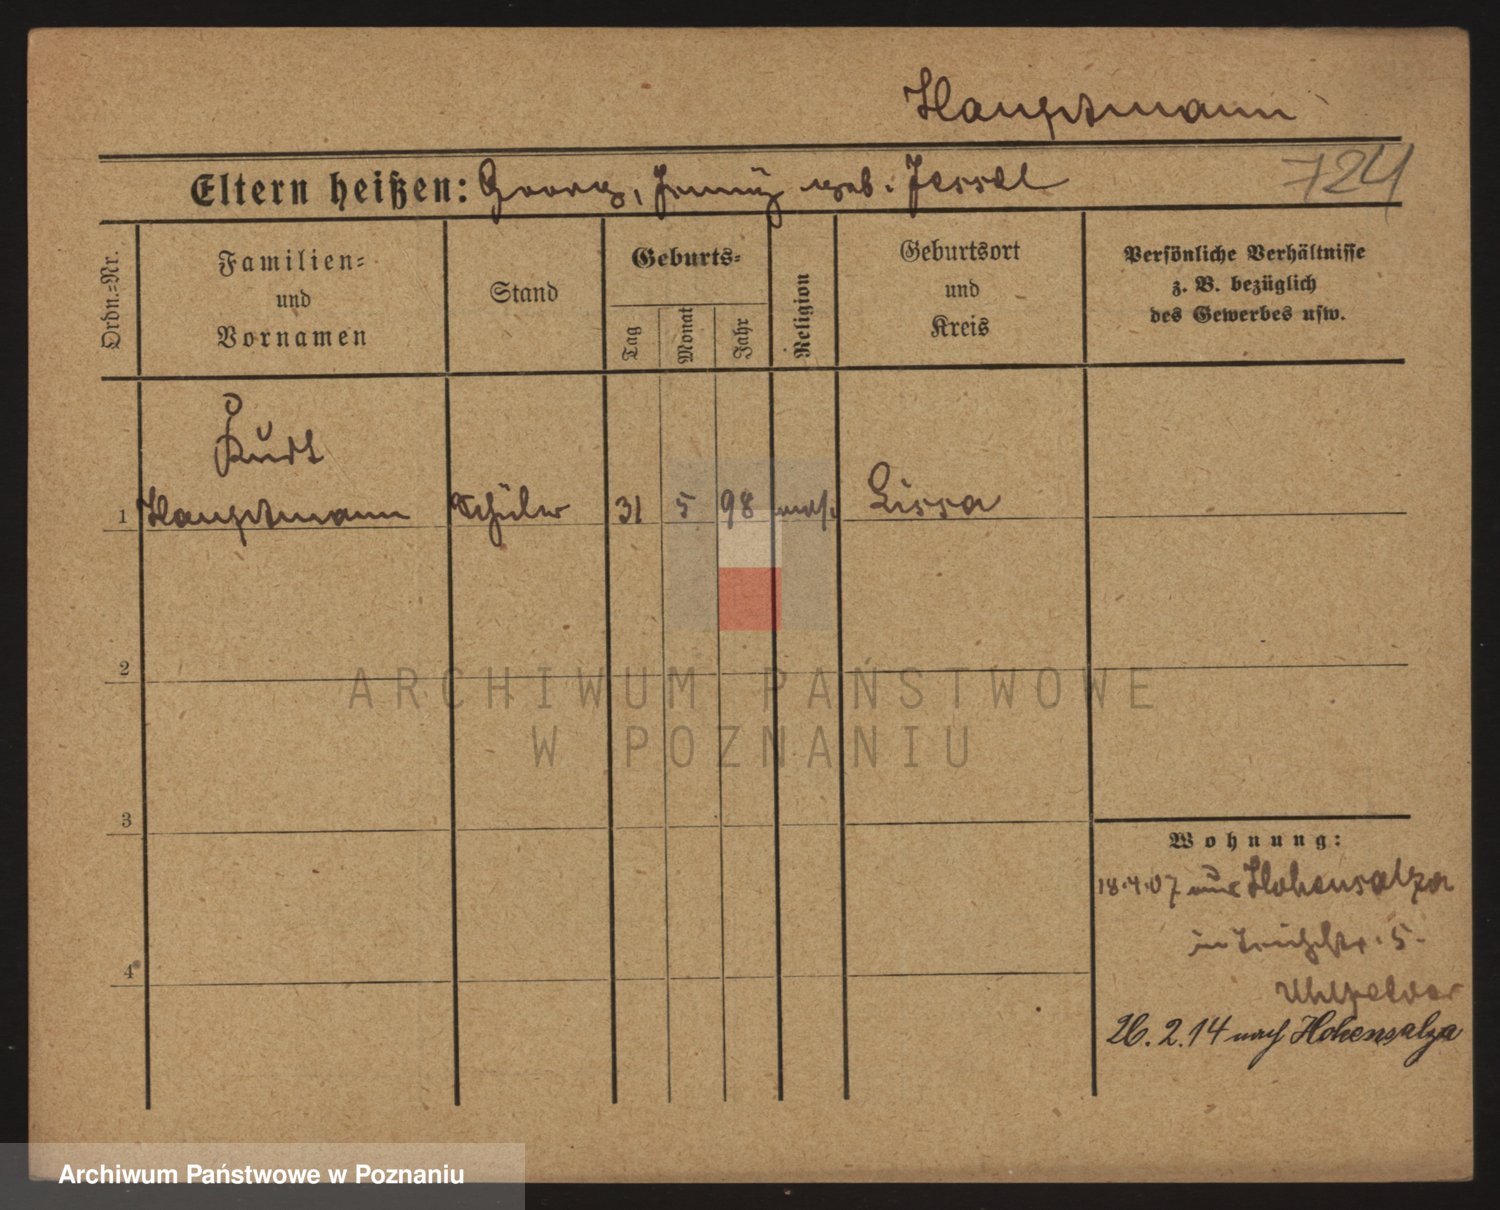 Hauptmann
Eltern heißen: Georg, Jenny geb. Jessel
724
Ordn.-Nr.
Familien-
und
Vornamen
Stand
Geburts-
Tag
Monat
Jahr
Religion
Geburtsort
und
Kreis
Persönliche Verhältnisse
z. B. bezüglich
des Gewerbes usw.
Kurt
1 Hauptmann Schüler 31 5 98 mos. Lissa
2
3
4
Wohnung:
18.4.07 aus Hohensalza
in 5.
26.2.14 nach Hohensalza
ARCHIWUM PAŃSTWOWE
W POZNANIU
Archiwum Państwowe w Poznaniu